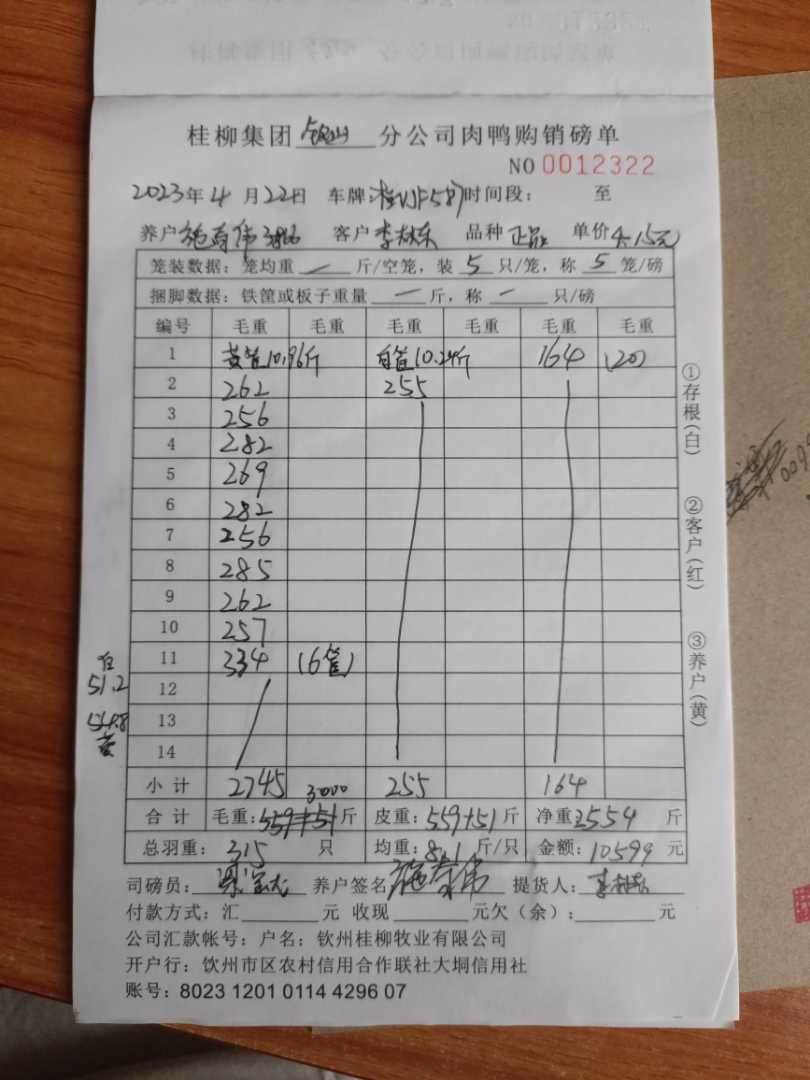 桂柳集团 钦山 分公司肉鸭购销磅单
NO 0012322
2023年4月22日 车牌 时间段： 至
养户 施寿伟 客户 李林东 品种 正品 单价 4.15元
笼装数据：笼均重 — 斤/空笼，装 5 只/笼，称 5 笼/磅
捆脚数据：铁筐或板子重量 — 斤，称 — 只/磅
编号 毛重 毛重 毛重 毛重 毛重 毛重
1 黄筐10.96斤 白筐10.24斤 164 (20)
2 262 255
3 256
4 282
5 269
6 282
7 256
8 285
9 262
10 257
11 334 (6筐)
12
13
14
小计 2745 3000 255 164
合计 毛重： 斤 皮重：559+51 斤 净重 2554 斤
总羽重： 315 只 均重：8.1 斤/只 金额：10599 元
司磅员： 养户签名 施寿伟 提货人： 李林东
付款方式：汇 元 收现 元欠（余）： 元
公司汇款帐号：户名：钦州桂柳牧业有限公司
开户行：饮州市区农村信用合作联社大垌信用社
账号：8023 1201 0114 4296 07
①存根(白)
②客户(红)
③养户(黄)
白
51.2
黄